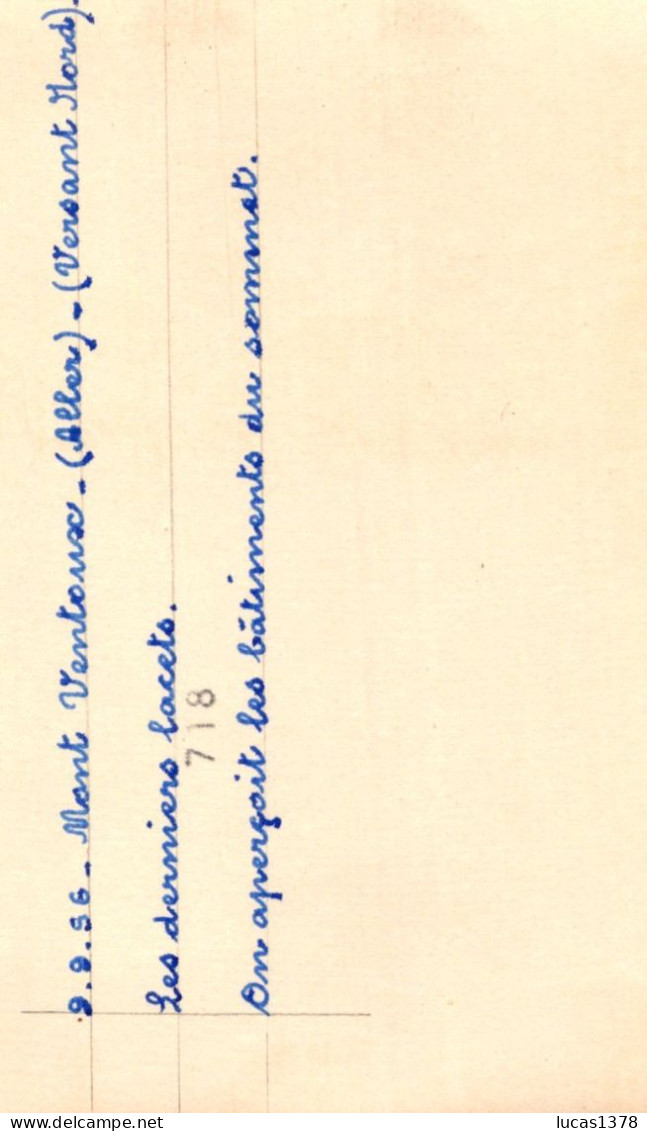 9.9.56 - Mont Ventoux - (Aller) - (Versant Nord).
Les derniers lacets.
718
On aperçoit les bâtiments du sommet.
delcampe.net
lucas1378